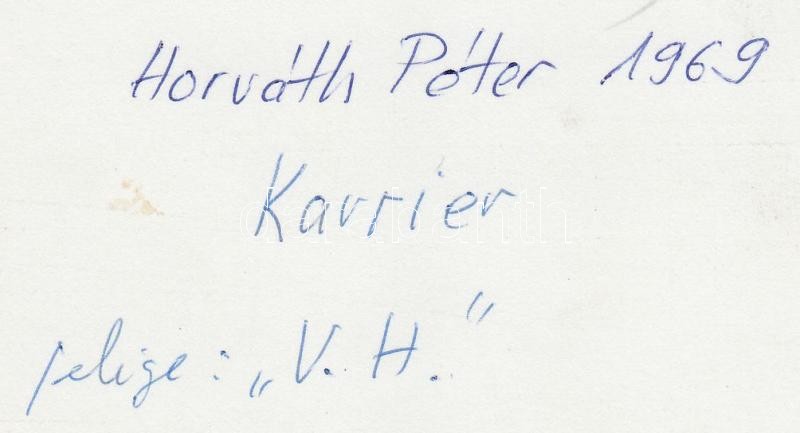 Horváth Péter 1969
Karrier
jelige: „V. H.”